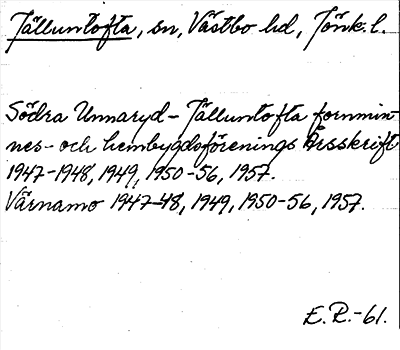 Jälluntofta, sn, Västbo hd, Jönk. l.
Södra Unnaryd - Jälluntofta fornmin-
nes- och hembygdsförenings Årsskrift
1947-1948, 1949, 1950-56, 1957.
Värnamo 1947-48, 1949, 1950-56, 1957.
E. R.-61.